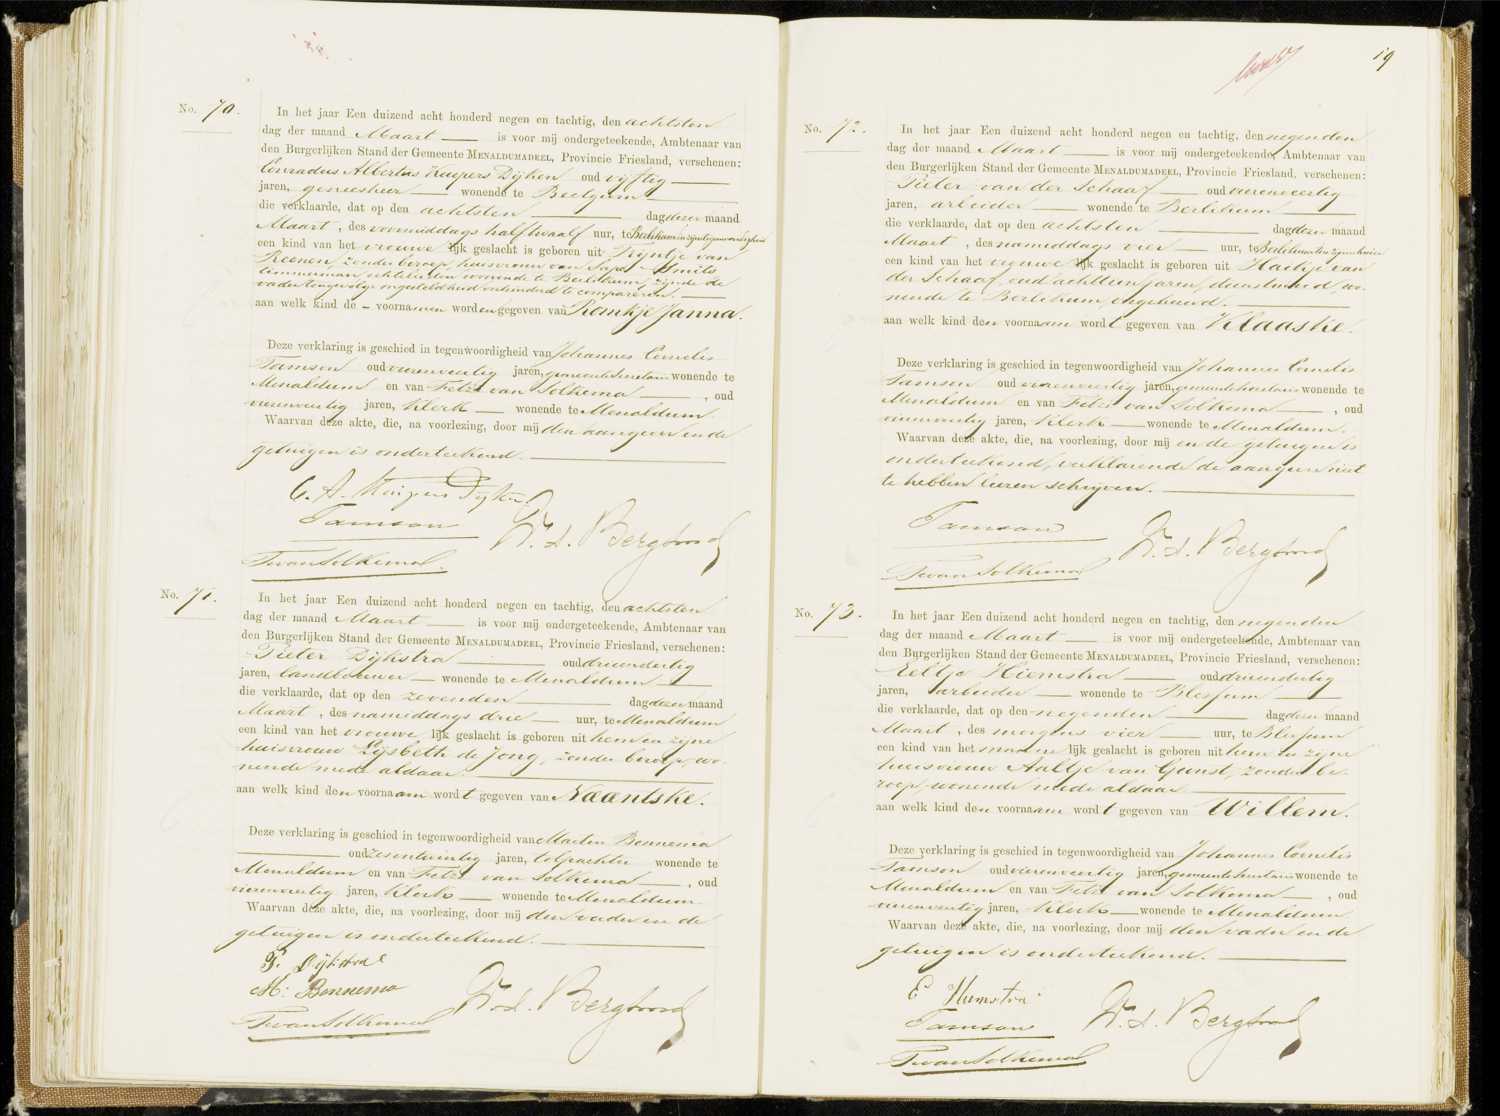 No. 70.
In het jaar Een duizend acht honderd negen en tachtig, den achtsten
dag der maand Maart — is voor mij ondergeteekende, Ambtenaar van
den Burgerlijken Stand der Gemeente MENALDUMADEEL, Provincie Friesland, verschenen:
Conradus Albertus Kuipers Dijken oud vijftig —
jaren, geneesheer — wonende te Beetgum —
die verklaarde, dat op den achtsten — dag dezer maand
Maart, des voormiddags half twaalf uur, te Berlikum in zijne tegenwoordigheid
een kind van het vrouwelijk geslacht is geboren uit Trijntje van
Reenen, zonder beroep, huisvrouw van Smits
timmerman, echtelieden wonende te Berlikum, zijnde de
vader tengevolge ongesteldheid verhinderd te compareren. —
aan welk kind de – voornamen worden gegeven van Romkje Janna.
Deze verklaring is geschied in tegenwoordigheid van Johannes Cornelis
Tamson oud vierenveertig jaren, gemeente Secretaris wonende te
Menaldum en van Fetze van Solkema —, oud
vierenveertig jaren, Klerk — wonende te Menaldum.
Waarvan deze akte, die, na voorlezing, door mij den aangever en de
getuigen is onderteekend. —
C. A. Kuipers Dijken.
Tamson
W. L. Bergfood
F van Solkema.
No. 71.
In het jaar Een duizend acht honderd negen en tachtig, den achtsten
dag der maand Maart — is voor mij ondergeteekende, Ambtenaar van
den Burgerlijken Stand der Gemeente MENALDUMADEEL, Provincie Friesland, verschenen:
Pieter Dijkstra — oud drieendertig
jaren, landbouwer — wonende te Menaldum —
die verklaarde, dat op den zevenden — dag dezer maand
Maart, des namiddags drie — uur, te Menaldum
een kind van het vrouwelijk geslacht is geboren uit hem en zijne
huisvrouw Lijsbeth de Jong, zonder beroep, wo-
nende mede aldaar. —
aan welk kind den voornaam wordt gegeven van Naentske.
Deze verklaring is geschied in tegenwoordigheid van Marten Bonnema
— oud zesentwintig jaren, tolpachter wonende te
Menaldum en van Fetze van Solkema —, oud
vierenveertig jaren, Klerk — wonende te Menaldum.
Waarvan deze akte, die, na voorlezing, door mij den vader en de
getuigen is onderteekend. —
P. Dijkstra
M. Bonnema
W. L. Bergfood
F van Solkema
19
No. 72.
In het jaar Een duizend acht honderd negen en tachtig, den negenden
dag der maand Maart — is voor mij ondergeteekende, Ambtenaar van
den Burgerlijken Stand der Gemeente MENALDUMADEEL, Provincie Friesland, verschenen:
Pieter van der Schaaf — oud vierenveertig
jaren, arbeider — wonende te Berlikum —
die verklaarde, dat op den achtsten — dag dezer maand
Maart, des namiddags vier — uur, te Berlikum ten zijnen huize
een kind van het vrouwelijk geslacht is geboren uit Haitje van
der Schaaf, oud achttien jaren, dienstmeid, wo-
nende te Berlikum, ongehuwd. —
aan welk kind den voornaam wordt gegeven van Klaaske.
Deze verklaring is geschied in tegenwoordigheid van Johannes Cornelis
Tamson oud vierenveertig jaren, gemeente Secretaris wonende te
Menaldum en van Fetze van Solkema —, oud
vierenveertig jaren, Klerk — wonende te Menaldum.
Waarvan deze akte, die, na voorlezing, door mij en de getuigen is
onderteekend, verklarende de aangever niet
te hebben leeren schrijven. —
Tamson
W. L. Bergfood
F van Solkema
No. 73.
In het jaar Een duizend acht honderd negen en tachtig, den negenden
dag der maand Maart — is voor mij ondergeteekende, Ambtenaar van
den Burgerlijken Stand der Gemeente MENALDUMADEEL, Provincie Friesland, verschenen:
Eeltje Hiemstra — oud drieendertig
jaren, arbeider — wonende te Blessum —
die verklaarde, dat op den negenden — dag dezer maand
Maart, des morgens vier — uur, te Blessum
een kind van het mannelijk geslacht is geboren uit hem en zijne
huisvrouw Aaltje van Gunst, zonder be-
roep, wonende mede aldaar —
aan welk kind den voornaam wordt gegeven van Willem.
Deze verklaring is geschied in tegenwoordigheid van Johannes Cornelis
Tamson oud vierenveertig jaren, gemeente Secretaris wonende te
Menaldum en van Fetze van Solkema —, oud
vierenveertig jaren, Klerk — wonende te Menaldum.
Waarvan deze akte, die, na voorlezing, door mij den vader en de
getuigen is onderteekend. —
E Hiemstra
Tamson
W. L. Bergfood
F van Solkema